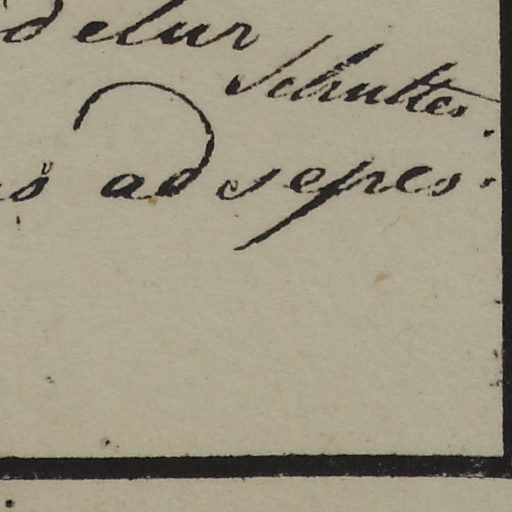 delur
Schultes.
s ad sepes.